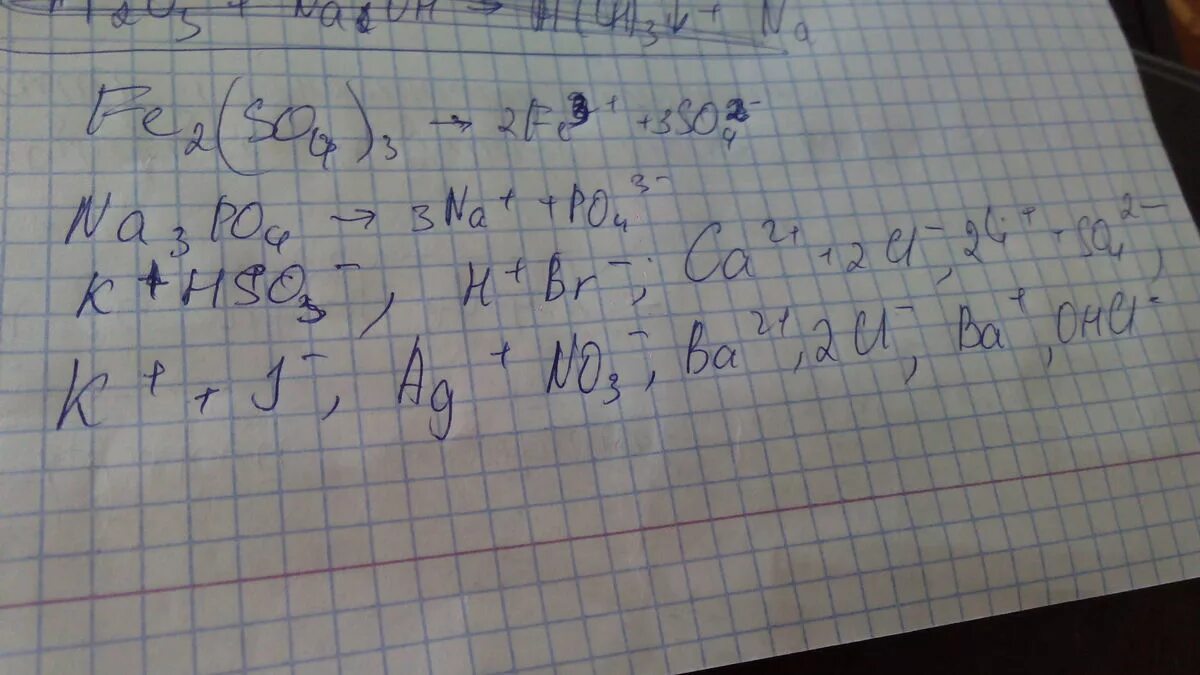 Fe₂(SO₄)₃ → 2Fe³⁺ + 3SO₄²⁻
Na₃PO₄ → 3Na⁺ + PO₄³⁻
K⁺ + HSO₃⁻, H⁺ Br⁻; Ca²⁺ + 2Cl⁻, 2Li⁺ + SO₄²⁻,
K⁺ + J⁻, Ag⁺ NO₃⁻, Ba²⁺, 2Cl⁻, Ba⁺, OHCl⁻